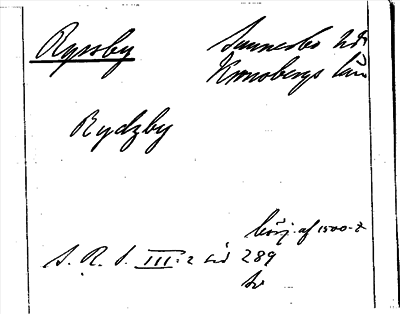 Ryssby Sunnerbo hd
Kronobergs län
Rydzby
börj. af 1500-t
S. R. S. III:2 sid 289